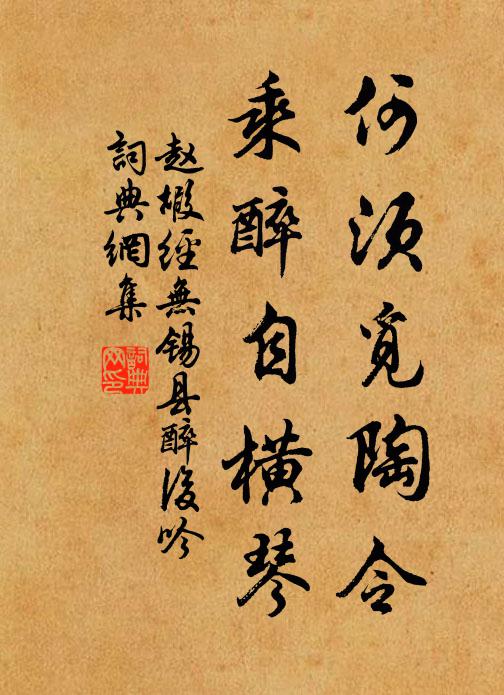 何须觅陶令
乘醉自横琴
赵嘏经无锡县醉后吟
詞典網集
詞典
网印